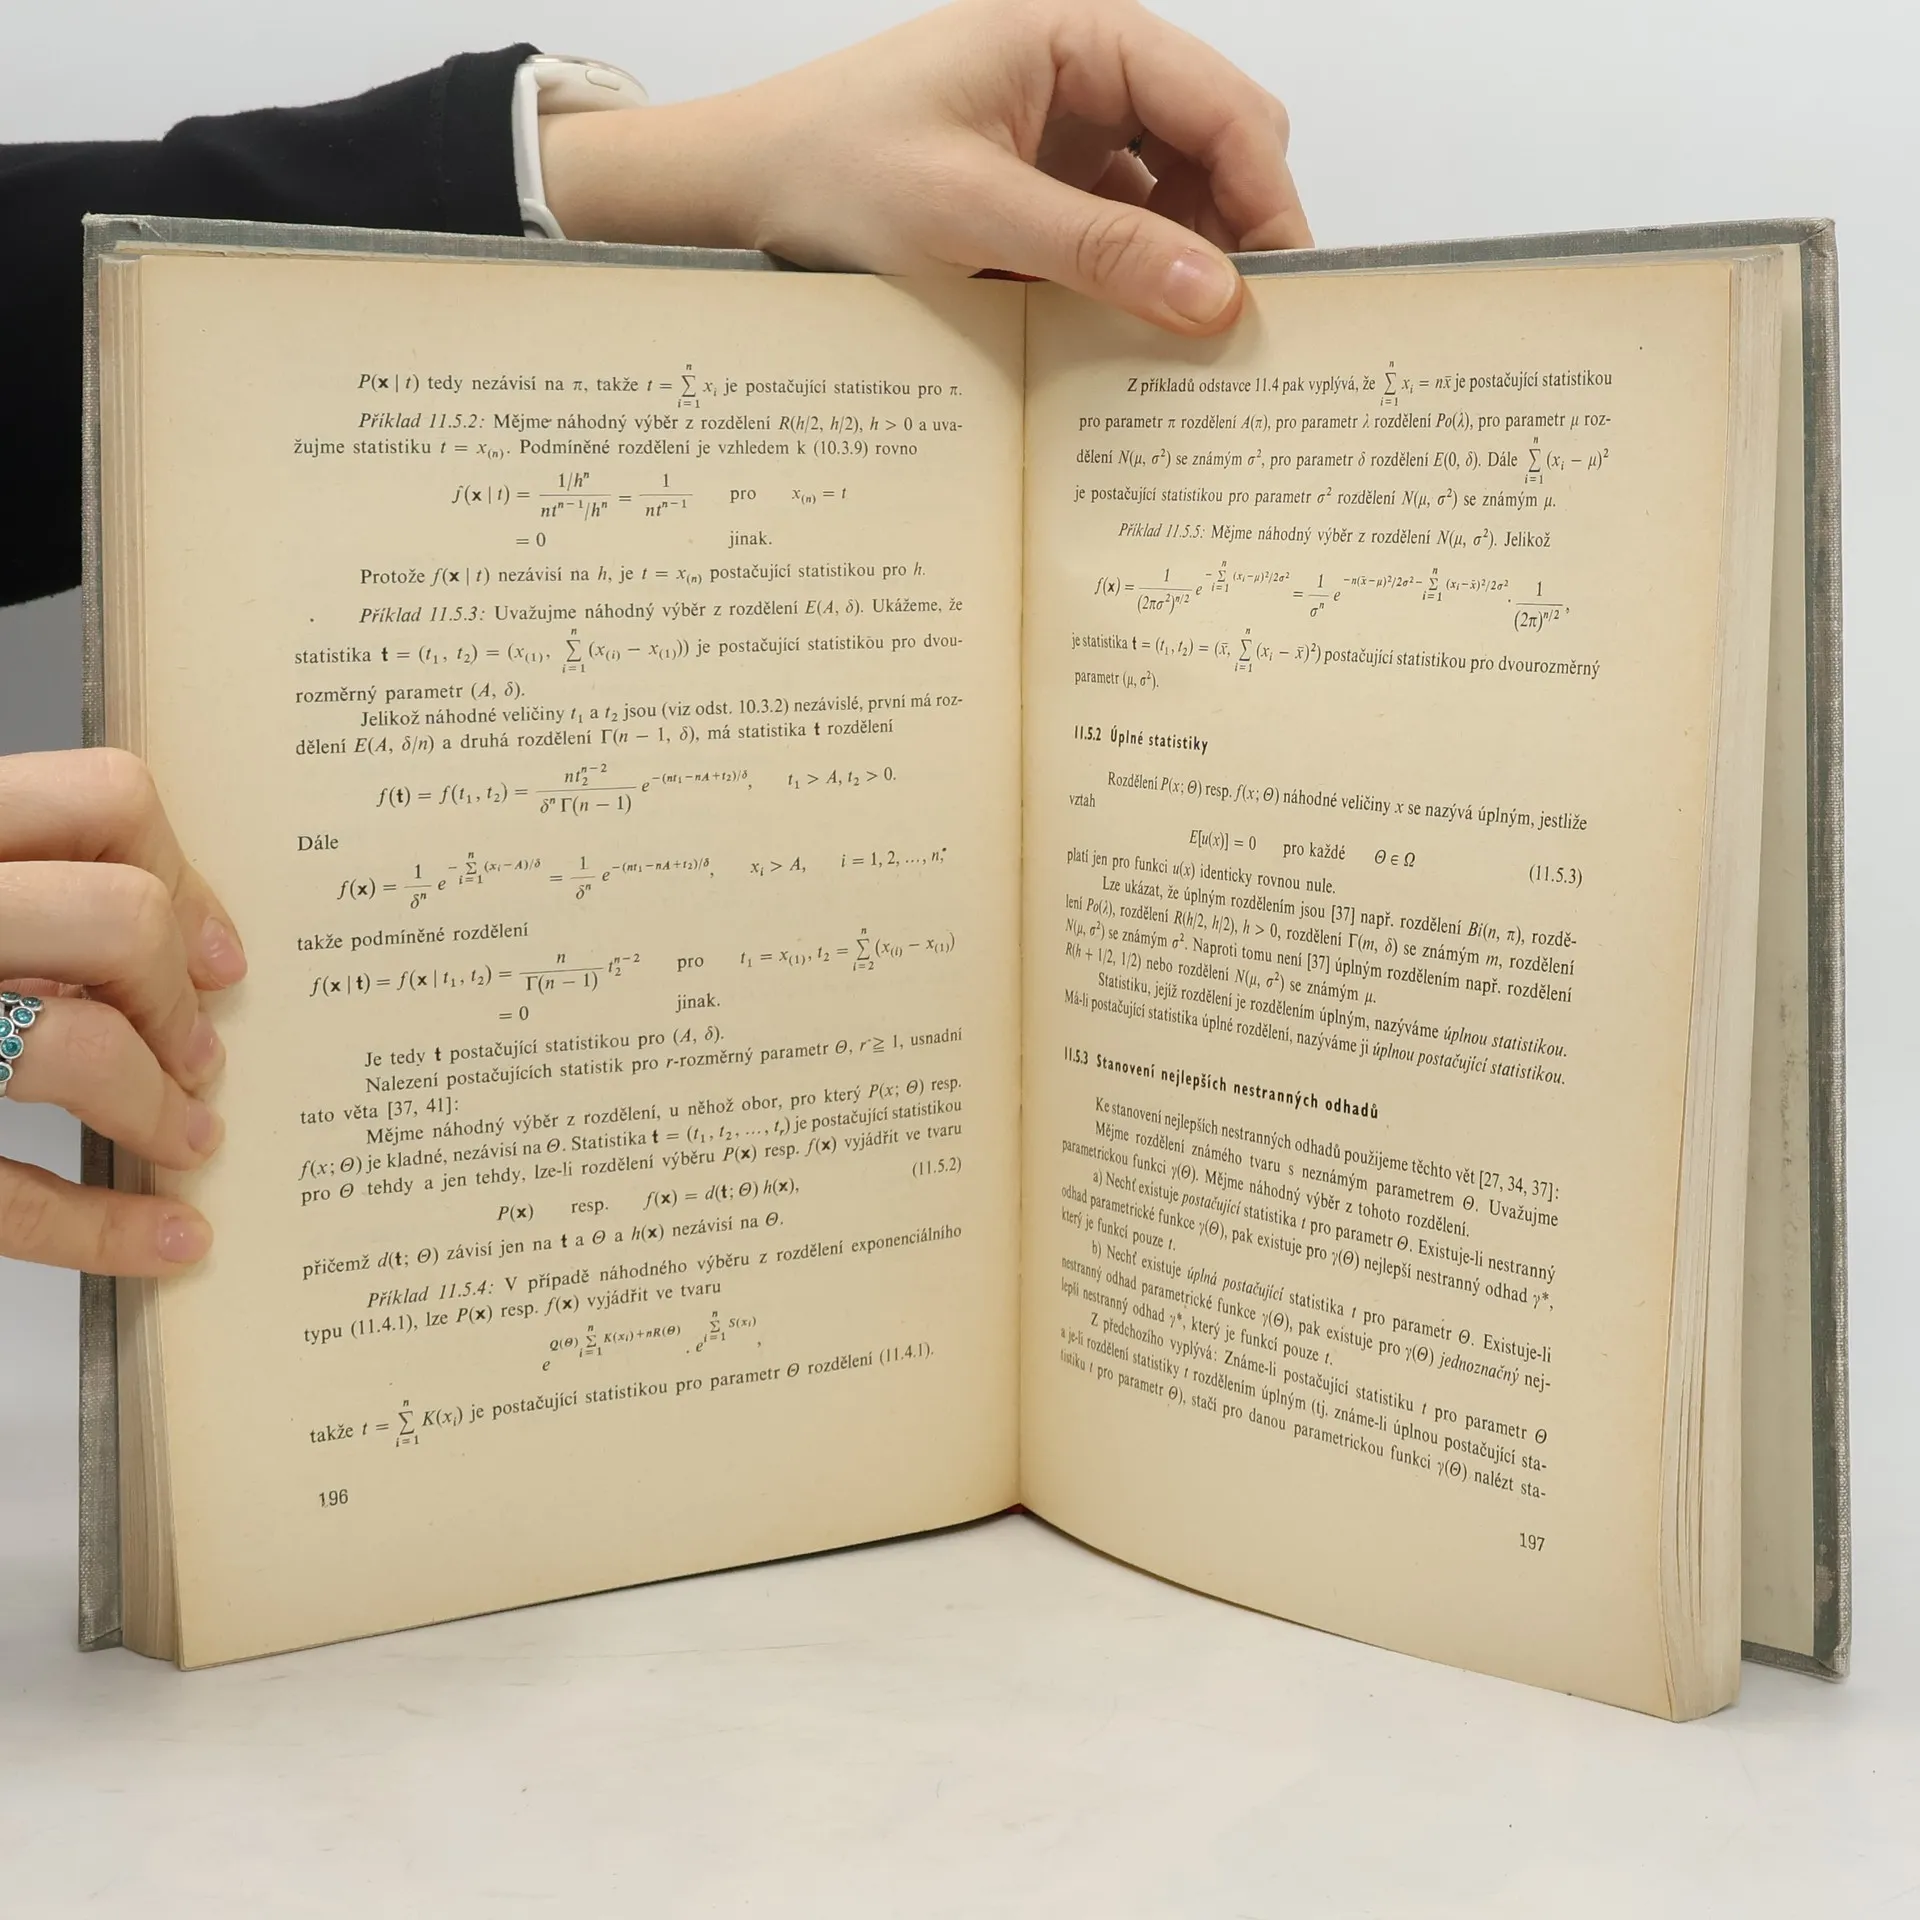 P(x | t) tedy nezávisí na π, takže t = ∑ⁿᵢ₌₁ xᵢ je postačující statistikou pro π.
Příklad 11.5.2: Mějme náhodný výběr z rozdělení R(h/2, h/2), h > 0 a uva-
žujme statistiku t = x₍ₙ₎. Podmíněné rozdělení je vzhledem k (10.3.9) rovno
f(x | t) = (1/hⁿ)/(ntⁿ⁻¹/hⁿ) = 1/(ntⁿ⁻¹) pro x₍ₙ₎ = t
= 0 jinak.
Protože f(x | t) nezávisí na h, je t = x₍ₙ₎ postačující statistikou pro h.
Příklad 11.5.3: Uvažujme náhodný výběr z rozdělení E(A, δ). Ukážeme, že
statistika t = (t₁, t₂) = (x₍₁₎, ∑ⁿᵢ₌₁ (x₍ᵢ₎ − x₍₁₎)) je postačující statistikou pro dvou-
rozměrný parametr (A, δ).
Jelikož náhodné veličiny t₁ a t₂ jsou (viz odst. 10.3.2) nezávislé, první má roz-
dělení E(A, δ/n) a druhá rozdělení Γ(n − 1, δ), má statistika t rozdělení
f(t) = f(t₁, t₂) = nt₂ⁿ⁻²/(δⁿ Γ(n − 1)) e^{−(nt₁−nA+t₂)/δ}, t₁ > A, t₂ > 0.
Dále
f(x) = 1/δⁿ e^{−∑ⁿᵢ₌₁(xᵢ−A)/δ} = 1/δⁿ e^{−(nt₁−nA+t₂)/δ}, xᵢ > A, i = 1, 2, ..., n,
takže podmíněné rozdělení
f(x | t) = f(x | t₁, t₂) = n/Γ(n − 1) t₂ⁿ⁻² pro t₁ = x₍₁₎, t₂ = ∑ⁿᵢ₌₂ (x₍ᵢ₎ − x₍₁₎)
= 0 jinak.
Je tedy t postačující statistikou pro (A, δ).
Nalezení postačujících statistik pro r-rozměrný parametr Θ, r ≧ 1, usnadní
tato věta [37, 41]:
Mějme náhodný výběr z rozdělení, u něhož obor, pro který P(x; Θ) resp.
f(x; Θ) je kladné, nezávisí na Θ. Statistika t = (t₁, t₂, ..., tᵣ) je postačující statistikou
pro Θ tehdy a jen tehdy, lze-li rozdělení výběru P(x) resp. f(x) vyjádřit ve tvaru
P(x) resp. f(x) = d(t; Θ) h(x), (11.5.2)
přičemž d(t; Θ) závisí jen na t a Θ a h(x) nezávisí na Θ.
Příklad 11.5.4: V případě náhodného výběru z rozdělení exponenciálního
typu (11.4.1), lze P(x) resp. f(x) vyjádřit ve tvaru
e^{Q(Θ) ∑ⁿᵢ₌₁ K(xᵢ)+nR(Θ)} . e^{∑ⁿᵢ₌₁ S(xᵢ)},
takže t = ∑ⁿᵢ₌₁ K(xᵢ) je postačující statistikou pro parametr Θ rozdělení (11.4.1).
196
Z příkladů odstavce 11.4 pak vyplývá, že ∑ⁿᵢ₌₁ xᵢ = nx̄ je postačující statistikou
pro parametr π rozdělení A(π), pro parametr λ rozdělení Po(λ), pro parametr μ roz-
dělení N(μ, σ²) se známým σ², pro parametr δ rozdělení E(0, δ). Dále ∑ⁿᵢ₌₁ (xᵢ − μ)²
je postačující statistikou pro parametr σ² rozdělení N(μ, σ²) se známým μ.
Příklad 11.5.5: Mějme náhodný výběr z rozdělení N(μ, σ²). Jelikož
f(x) = 1/(2πσ²)^{n/2} e^{−∑ⁿᵢ₌₁ (xᵢ−μ)²/2σ²} = 1/σⁿ e^{−n(x̄−μ)²/2σ²−∑ⁿᵢ₌₁ (xᵢ−x̄)²/2σ²} . 1/(2π)^{n/2},
je statistika t = (t₁, t₂) = (x̄, ∑ⁿᵢ₌₁ (xᵢ − x̄)²) postačující statistikou pro dvourozměrný
parametr (μ, σ²).
11.5.2 Úplné statistiky
Rozdělení P(x; Θ) resp. f(x; Θ) náhodné veličiny x se nazývá úplným, jestliže
vztah
E[u(x)] = 0 pro každé Θ ∈ Ω (11.5.3)
platí jen pro funkci u(x) identicky rovnou nule.
Lze ukázat, že úplným rozdělením jsou [37] např. rozdělení Bi(n, π), rozdě-
lení Po(λ), rozdělení R(h/2, h/2), h > 0, rozdělení Γ(m, δ) se známým m, rozdělení
N(μ, σ²) se známým σ². Naproti tomu není [37] úplným rozdělením např. rozdělení
R(h + 1/2, 1/2) nebo rozdělení N(μ, σ²) se známým μ.
Statistiku, jejíž rozdělení je rozdělením úplným, nazýváme úplnou statistikou.
Má-li postačující statistika úplné rozdělení, nazýváme ji úplnou postačující statistikou.
11.5.3 Stanovení nejlepších nestranných odhadů
Ke stanovení nejlepších nestranných odhadů použijeme těchto vět [27, 34, 37]:
Mějme rozdělení známého tvaru s neznámým parametrem Θ. Uvažujme
parametrickou funkci γ(Θ). Mějme náhodný výběr z tohoto rozdělení.
a) Nechť existuje postačující statistika t pro parametr Θ. Existuje-li nestranný
odhad parametrické funkce γ(Θ), pak existuje pro γ(Θ) nejlepší nestranný odhad γ*,
který je funkcí pouze t.
b) Nechť existuje úplná postačující statistika t pro parametr Θ. Existuje-li
nestranný odhad parametrické funkce γ(Θ), pak existuje pro γ(Θ) jednoznačný nej-
lepší nestranný odhad γ*, který je funkcí pouze t.
Z předchozího vyplývá: Známe-li postačující statistiku t pro parametr Θ
a je-li rozdělení statistiky t rozdělením úplným (tj. známe-li úplnou postačující sta-
tistiku t pro parametr Θ), stačí pro danou parametrickou funkci γ(Θ) nalézt sta-
197